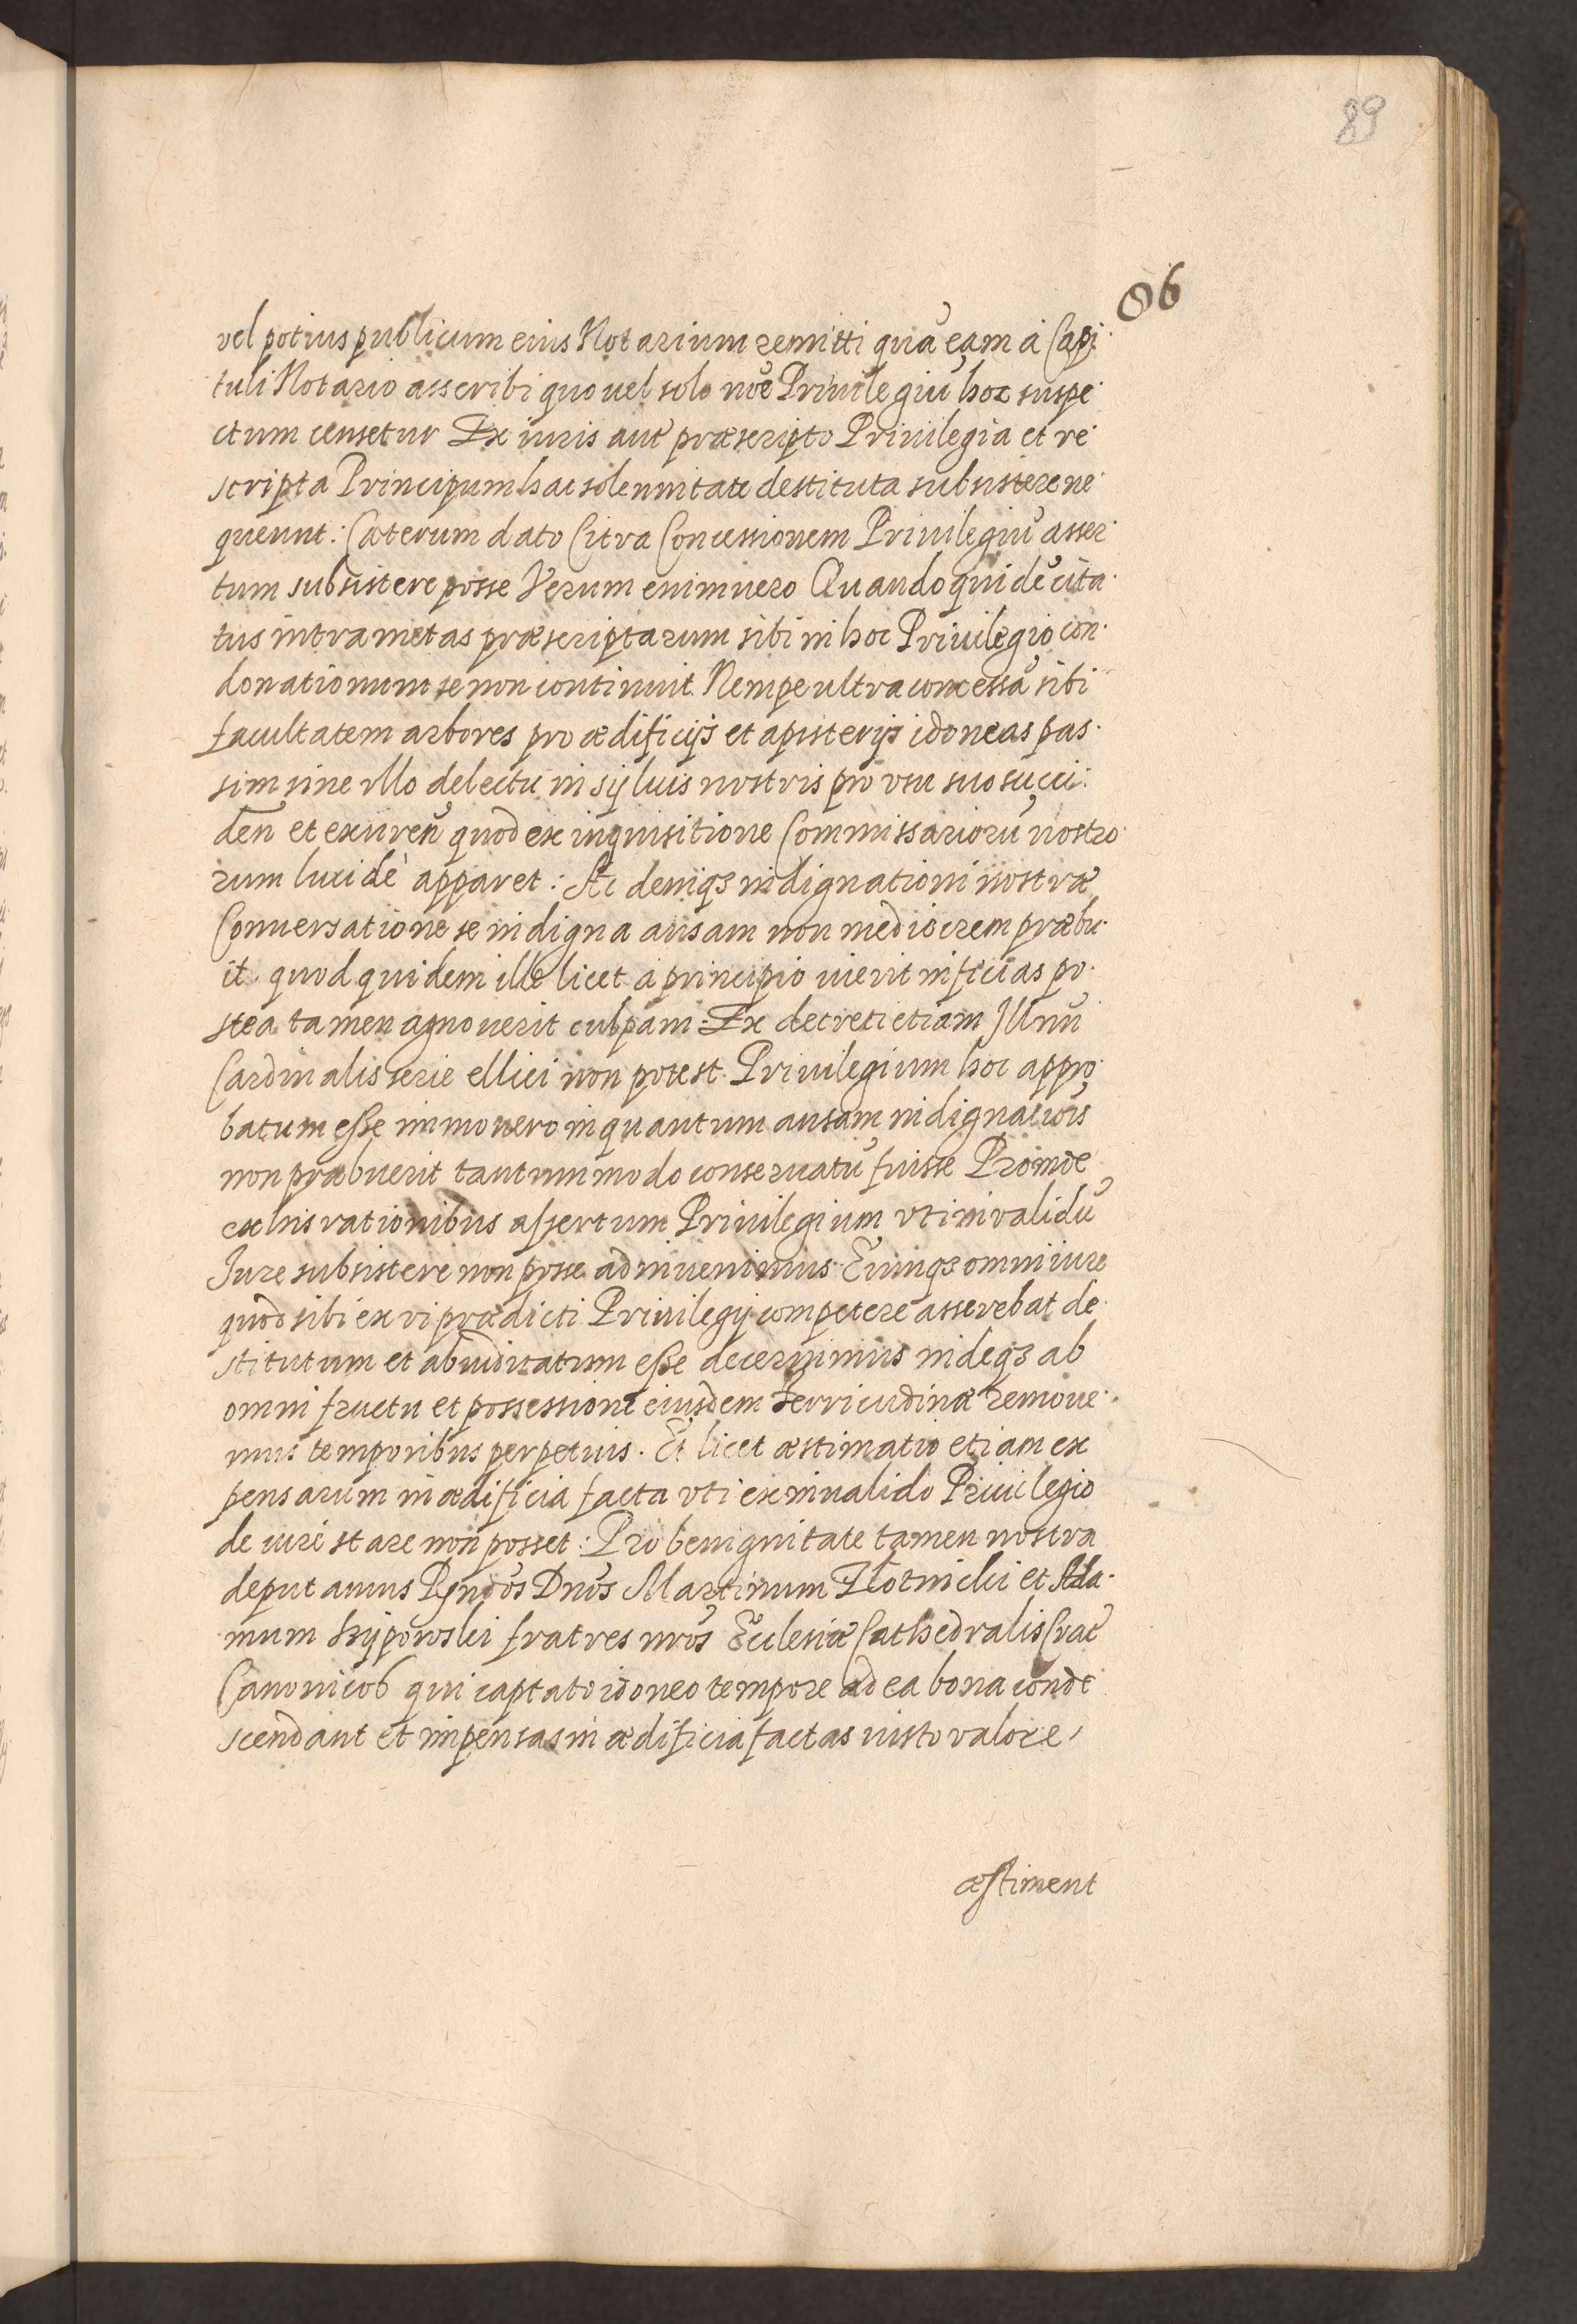 89
86
vel potius publicum eius Notarium remitti quã eam à Capi
tuli Notario asscribi quo vel solo noẽ Priuilegiũ hoc suspe
ctum censetur Ex iuris aut̃ præscripto Priuilegia et re
scripta Principum hac solennitate destituta subsistere ne
queunt: Cæterum dato Citra Concessionem Priuilegiũ asser
tum subsistere posse Verum enimuero Quandoquidẽ cita
tus intra metas præscriptarum sibi in hoc Priuilegio con
donationum se non continuit. Nempe ultra concessã sibi
facultatem arbores pro ædificijs et apisterijs idoneas pas
sim sine vllo delectu in syluis nostris pro vsu suo succi
deñ et exureñ quod ex inquisitione Commissariorũ nostro
rum lucidè apparet: Ac deniq3 indignationi nostræ
Conuersatione se indigna ansam non mediocrem præbu
it quod quidem ille licet à principio iuerit inficias po
stea tamen agnouerit culpam: Ex decreti etiam Illnũ
Cardinalis serie ellici non potest Priuilegium hoc appro
batum esse immo vero inquantum ansam indignatiõis
non præbuerit tantummodo conseruatũ fuisse Proinde
ex his rationibus assertum Priuilegium vti inualidũ
Jure subsistere non posse adinuenimus Eumq3 omni iure
quod sibi ex vi prædicti Priuilegij competere asserebat de
stitutum et abiudicatum esse decernimus indeq3 ab
omni fructu et possessione eiusdem Ferricudinæ remoue
mus temporibus perpetuis. Et licet æstimatio etiam ex
pensarum in ædificia facta vti ex inualido Priuilegio
de iure stare non posset: Pro benignitate tamen nostra
deputamus Rñdos Dnõs Martinum Zlotnicki et Ada
mum fratres nrõs Ecclesiæ Cathedralis Crac̃
Canonicos qui captato idoneo tempore ad ea bona conde
scendant et impensas in ædificia factas iusto valore
æstiment